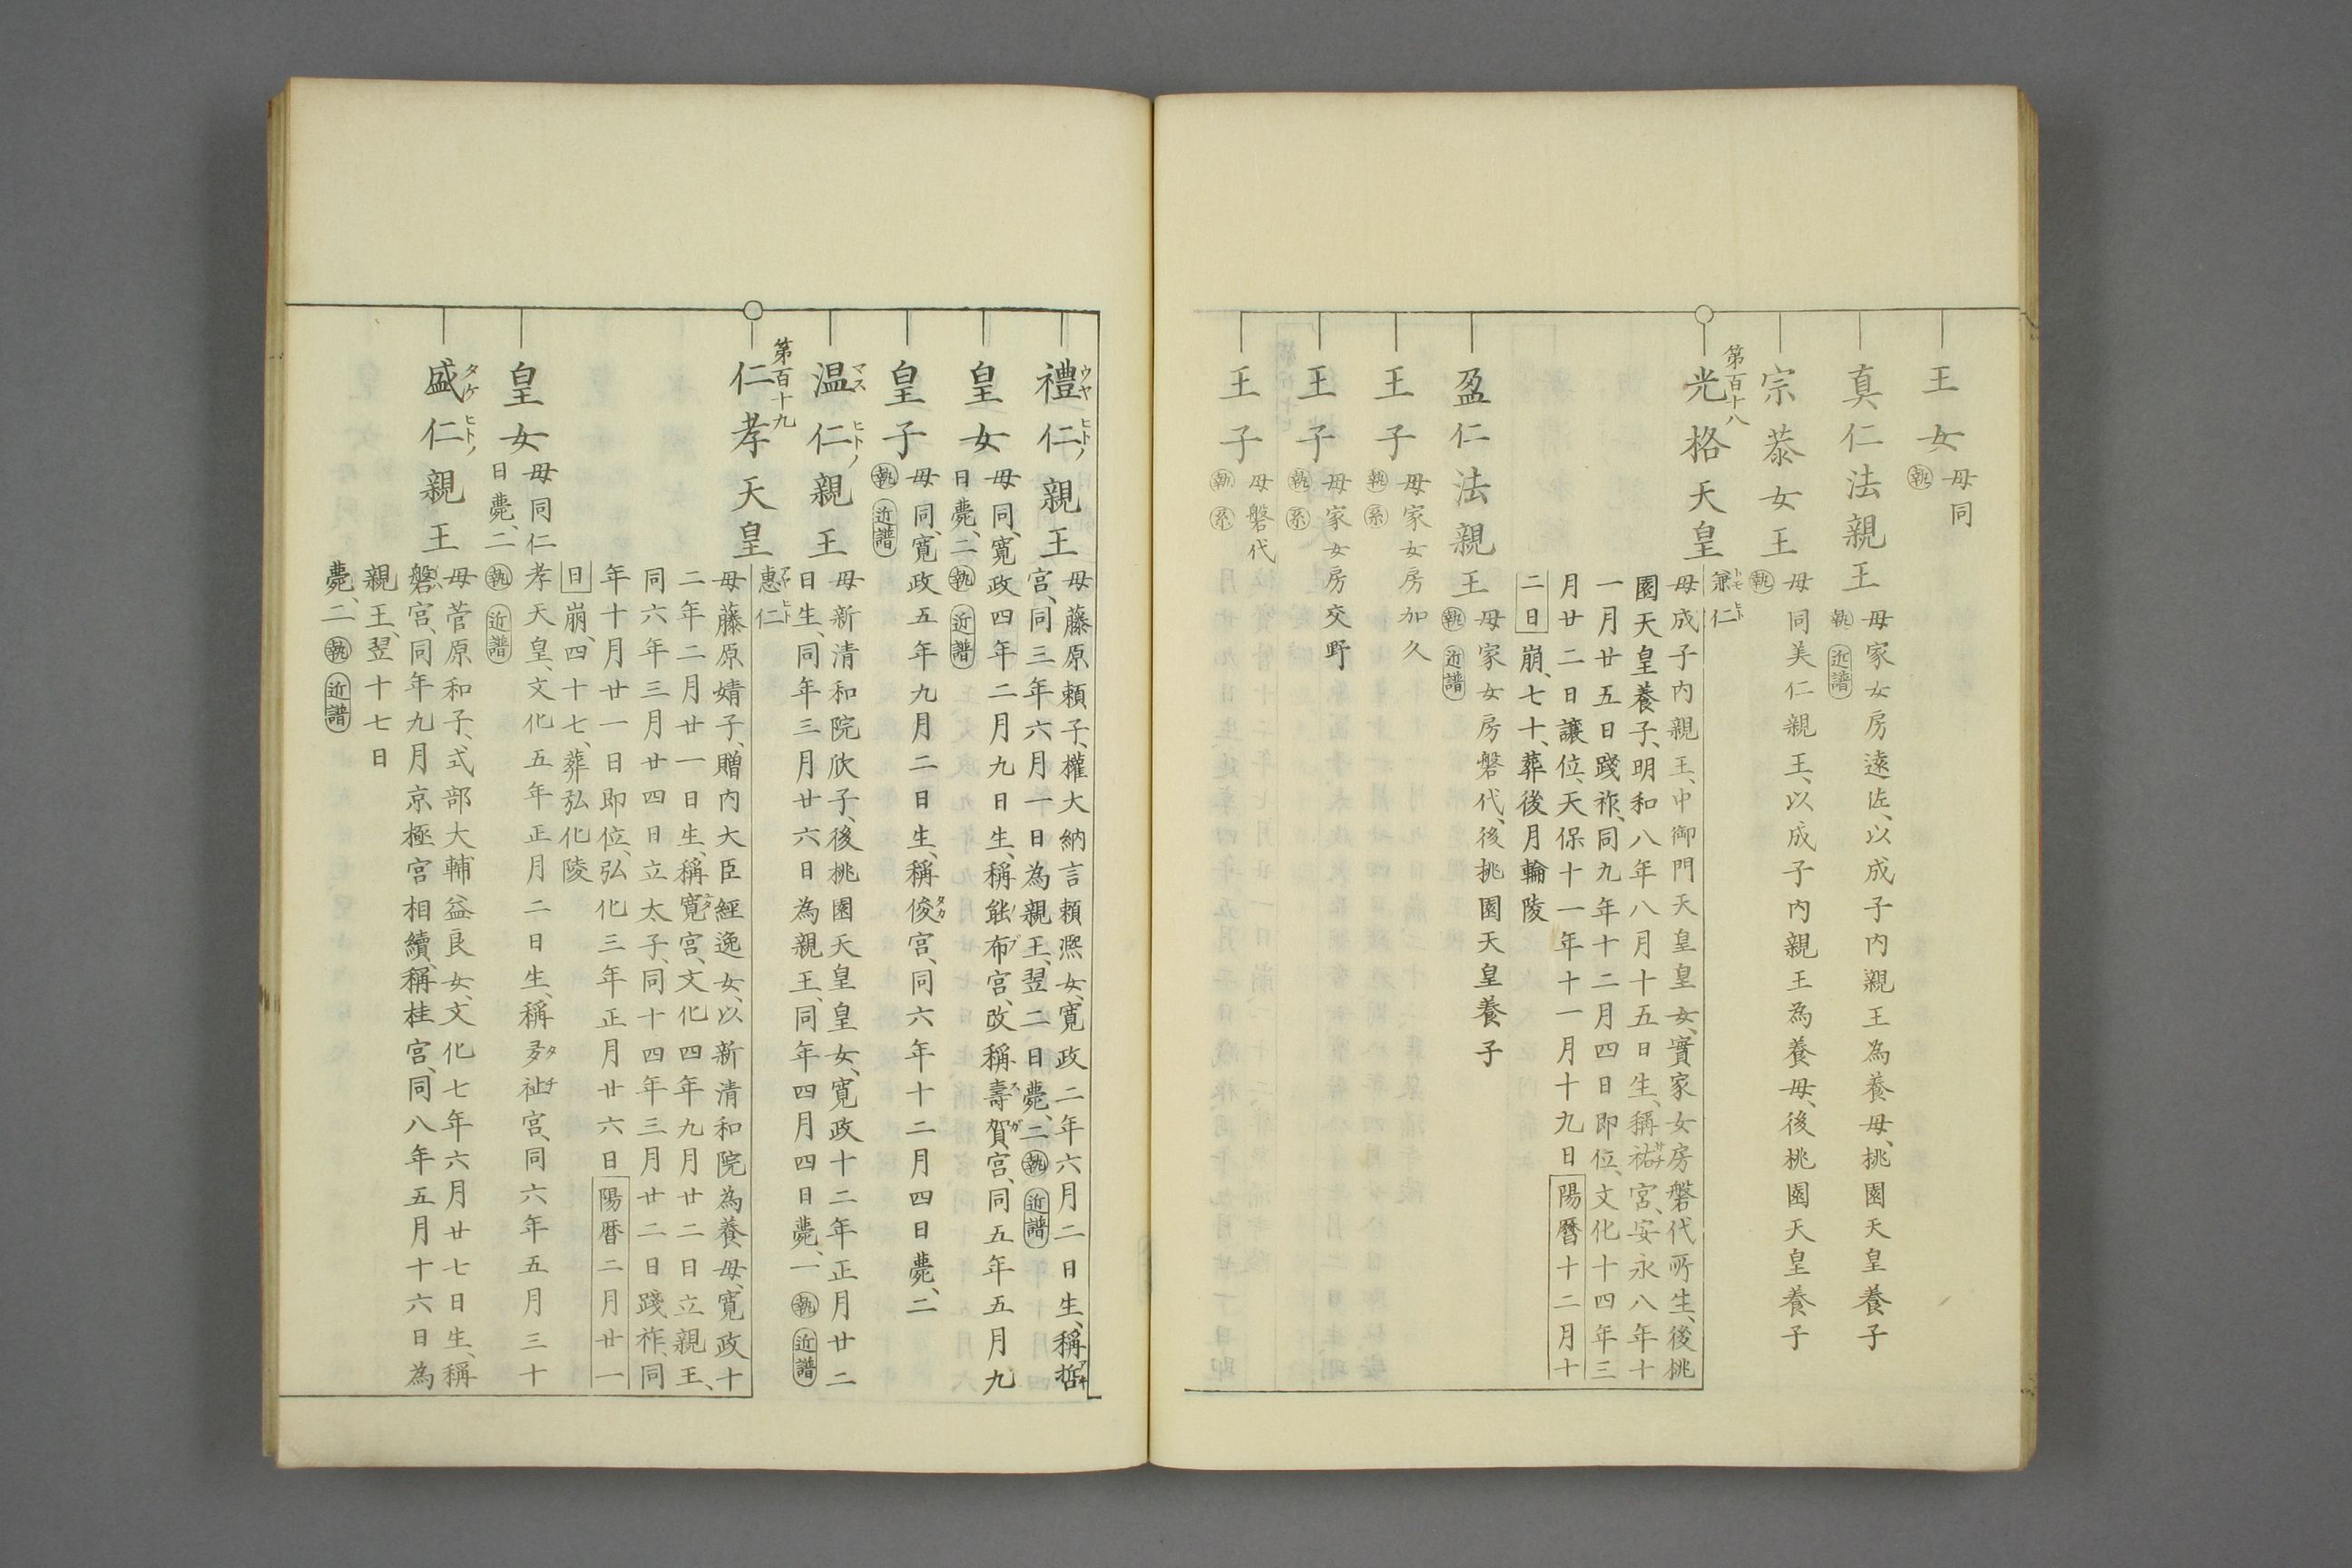 王女
母同
執
真仁法親王
母家女房遠佐、以成子內親王為養母、桃園天皇養子
執 近譜
宗恭女王
母同美仁親王、以成子內親王為養母、後桃園天皇養子
執
第百十八
光格天皇
兼仁
トモヒト
母成子內親王、中御門天皇皇女、實家女房磐代所生、後桃
園天皇養子、明和八年八月十五日生、稱祐宮、安永八年十
サチ
一月廿五日踐祚、同九年十二月四日即位、文化十四年三
月廿二日讓位、天保十一年十一月十九日陽曆十二月十
二日崩、七十、葬後月輪陵
盈仁法親王
母家女房磐代、後桃園天皇養子
執 近譜
王子
母家女房加久
執 系
王子
母家女房交野
執 系
王子
母磐代
執 系
禮仁親王
ウヤヒトノ
母藤原賴子、權大納言賴凞女、寬政二年六月二日生、稱哲
アキ
宮、同三年六月一日為親王、翌二日薨、二 執 近譜
皇女
母同、寬政四年二月九日生、稱能布宮、改稱壽賀宮、同五年五月九
ノブ
スガ
日薨、二 執 近譜
皇子
母同、寬政五年九月二日生、稱俊宮、同六年十二月四日薨、二
タカ
執 近譜
温仁親王
マスヒトノ
母新清和院欣子、後桃園天皇皇女、寬政十二年正月廿二
日生、同年三月廿六日為親王、同年四月四日薨、一 執 近譜
第百十九
仁孝天皇
惠仁
アヤヒト
母藤原婧子、贈內大臣經逸女、以新清和院為養母、寬政十
二年二月廿一日生、稱寬宮、文化四年九月廿二日立親王、
ユタ
同六年三月廿四日立太子、同十四年三月廿二日踐祚、同
年十月廿一日即位、弘化三年正月廿六日陽曆二月廿一
日崩、四十七、葬弘化陵
皇女
母同仁孝天皇、文化五年正月二日生、稱多祉宮、同六年五月三十
タチ
日薨、二 執 近譜
盛仁親王
タケヒトノ
母菅原和子、式部大輔益良女、文化七年六月廿七日生、稱
磐宮、同年九月京極宮相續、稱桂宮、同八年五月十六日為
親王、翌十七日
薨、二 執 近譜